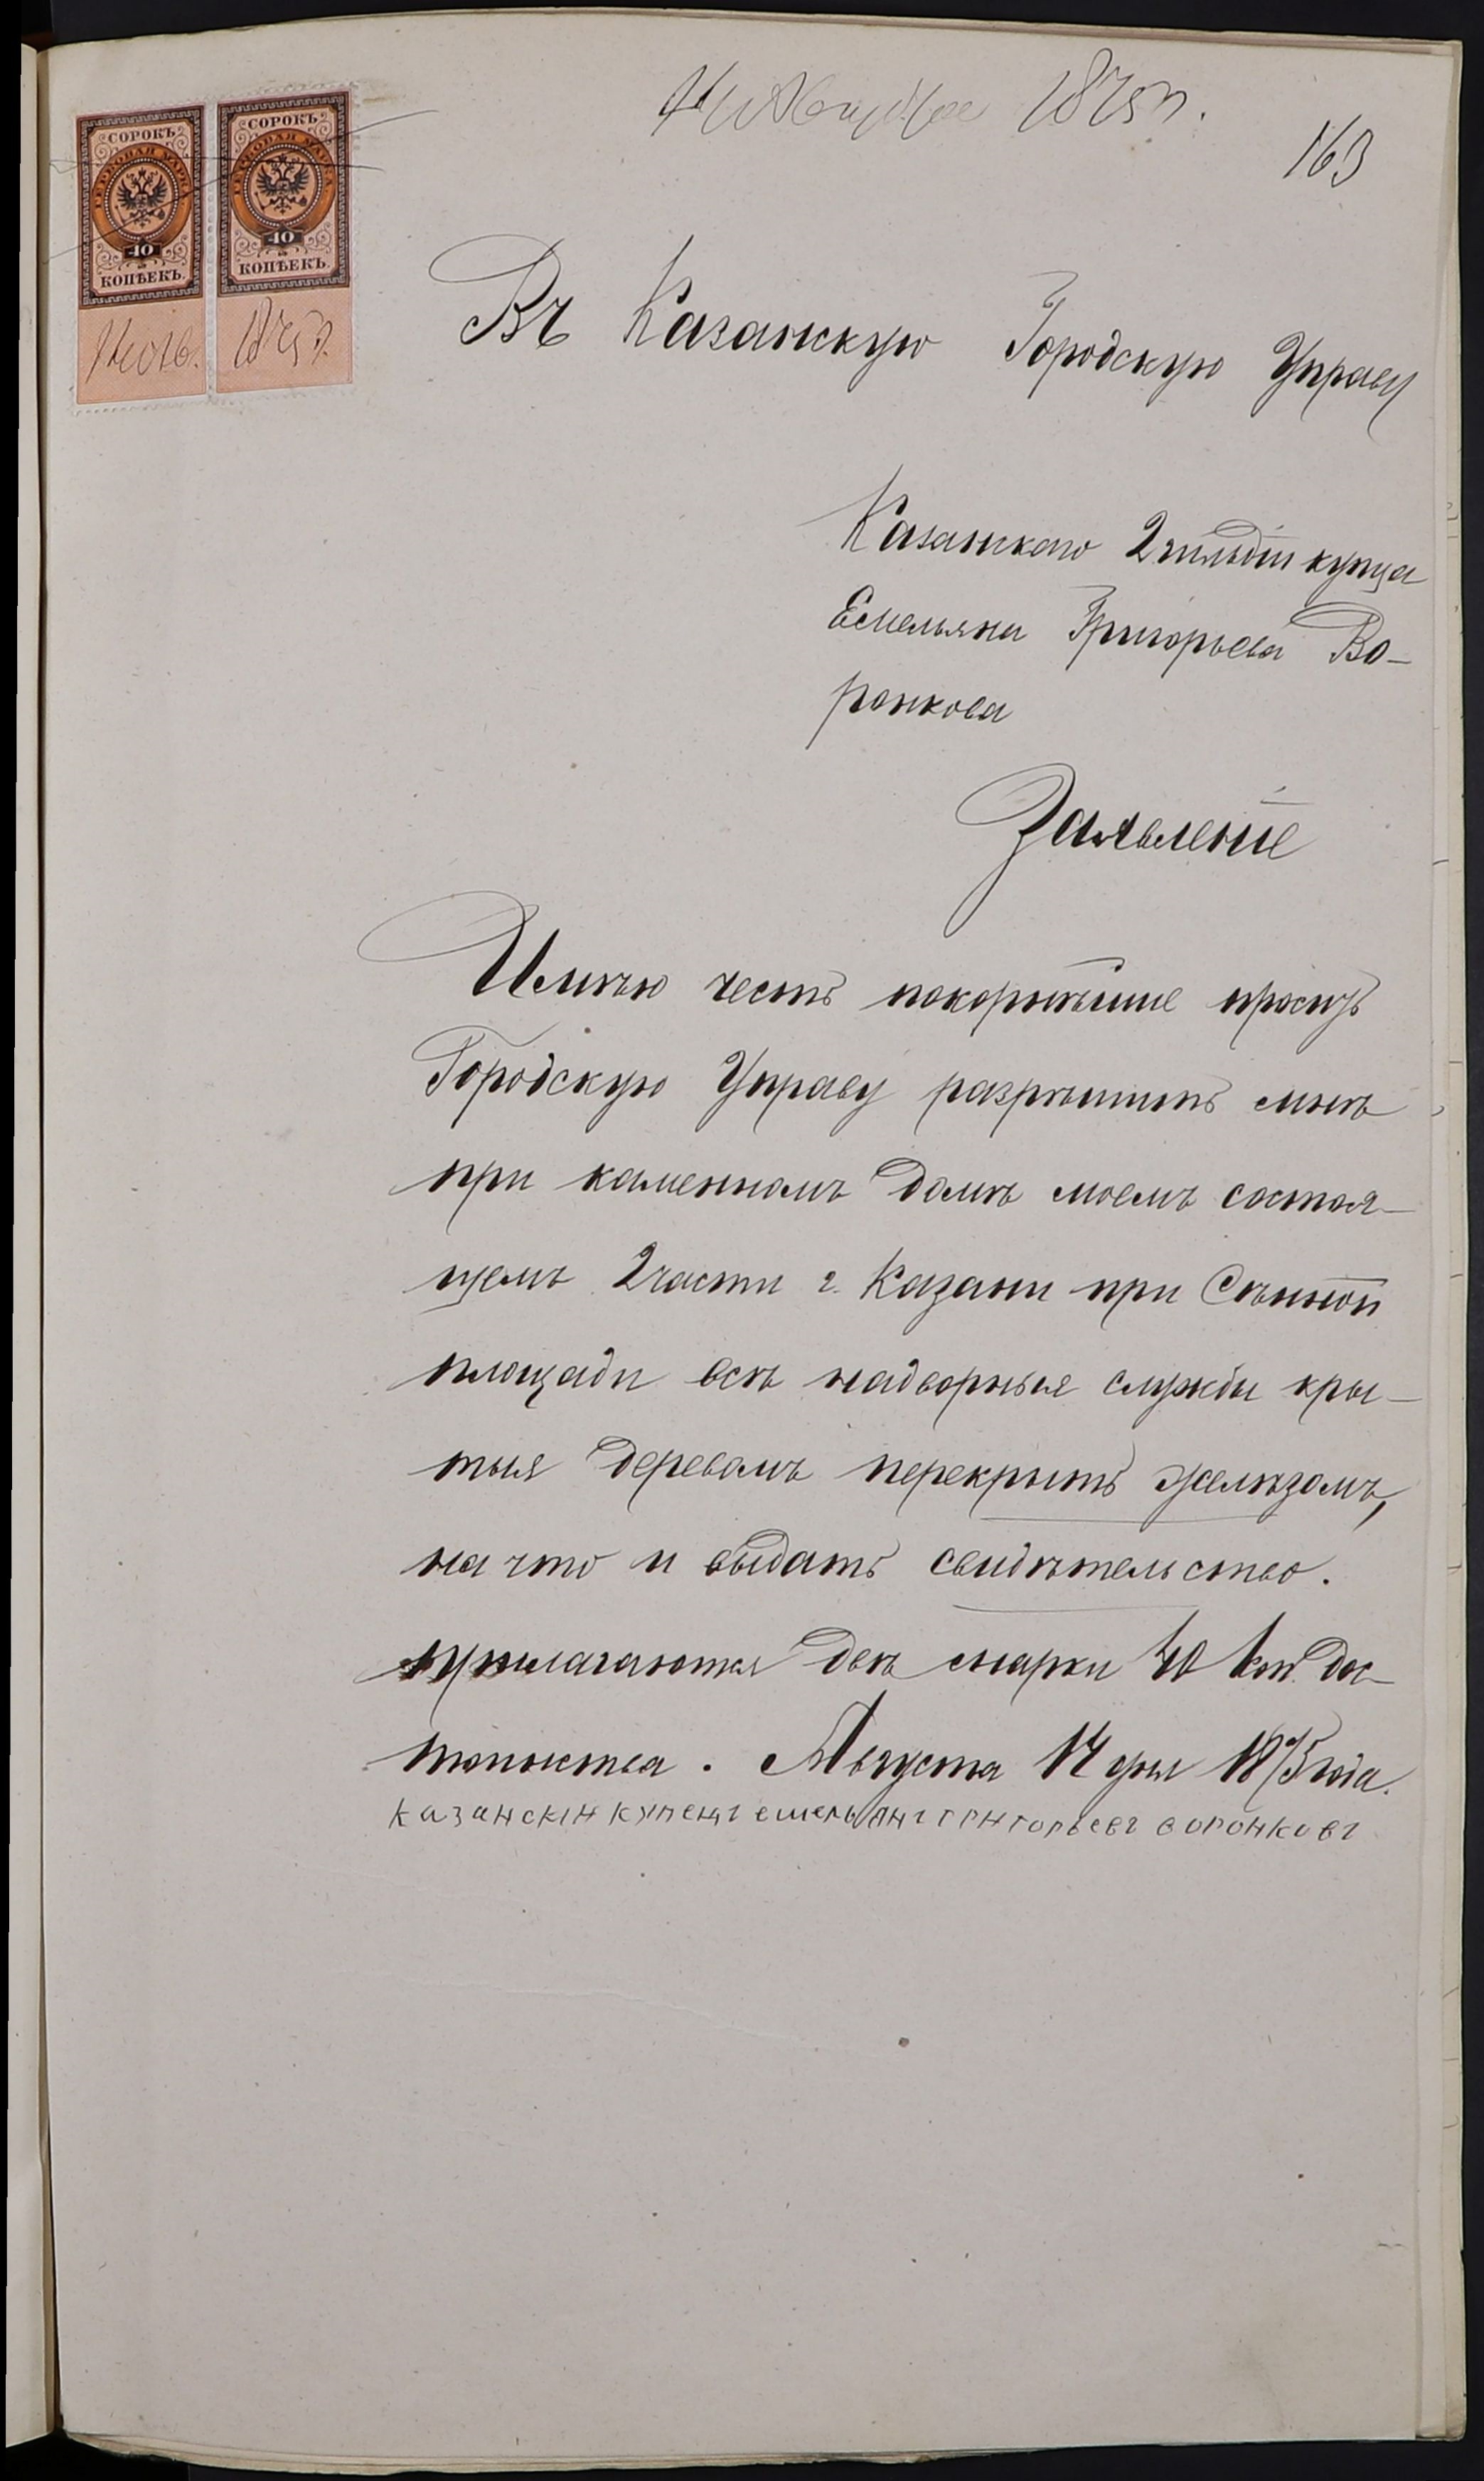 1875 г.
163
СОРОКЪ
ГЕРБОВАЯ МАРКА
40
КОПѢЕКЪ.
СОРОКЪ
ГЕРБОВАЯ МАРКА
40
КОПѢЕКЪ.
1875 г.
Въ Казанскую Городскую Управу
Казанскаго 2 гильдіи купца
Емельяна Григорьева Во-
ронкова
Заявленіе
Имѣю честь покорнѣйше просить
Городскую Управу разрѣшить мнѣ
при каменномъ домѣ моемъ состоя-
щемъ 2 части г. Казани при Сѣнной
площади всѣ надворныя службы кры-
тыя деревомъ перекрыть желѣзомъ,
на что и выдать свидѣтельство.
прилагаются двѣ марки 40 коп. дос-
тоинства. Августа 17 дня 1875 года.
казанскін купецъ емельянъ григорьевъ воронковъ